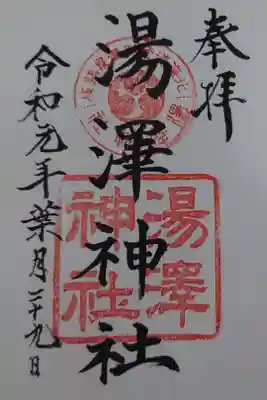 奉拝
湯澤神社
湯澤
神社
令和元年葉月二十九日